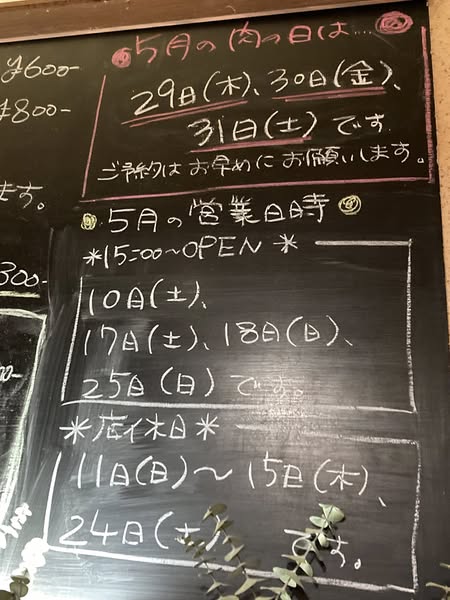 ¥600-
¥800-
ます。
300-
00-
5月の肉の日は…
29日(木)、30日(金)、
31日(土)です
ご予約はお早めにお願いします。
5月の営業日時
*15:00〜OPEN*
10日(土)、
17日(土)、18日(日)、
25日(日)です。
*店休日*
11日(日)〜15日(木)、
24日(土)です。